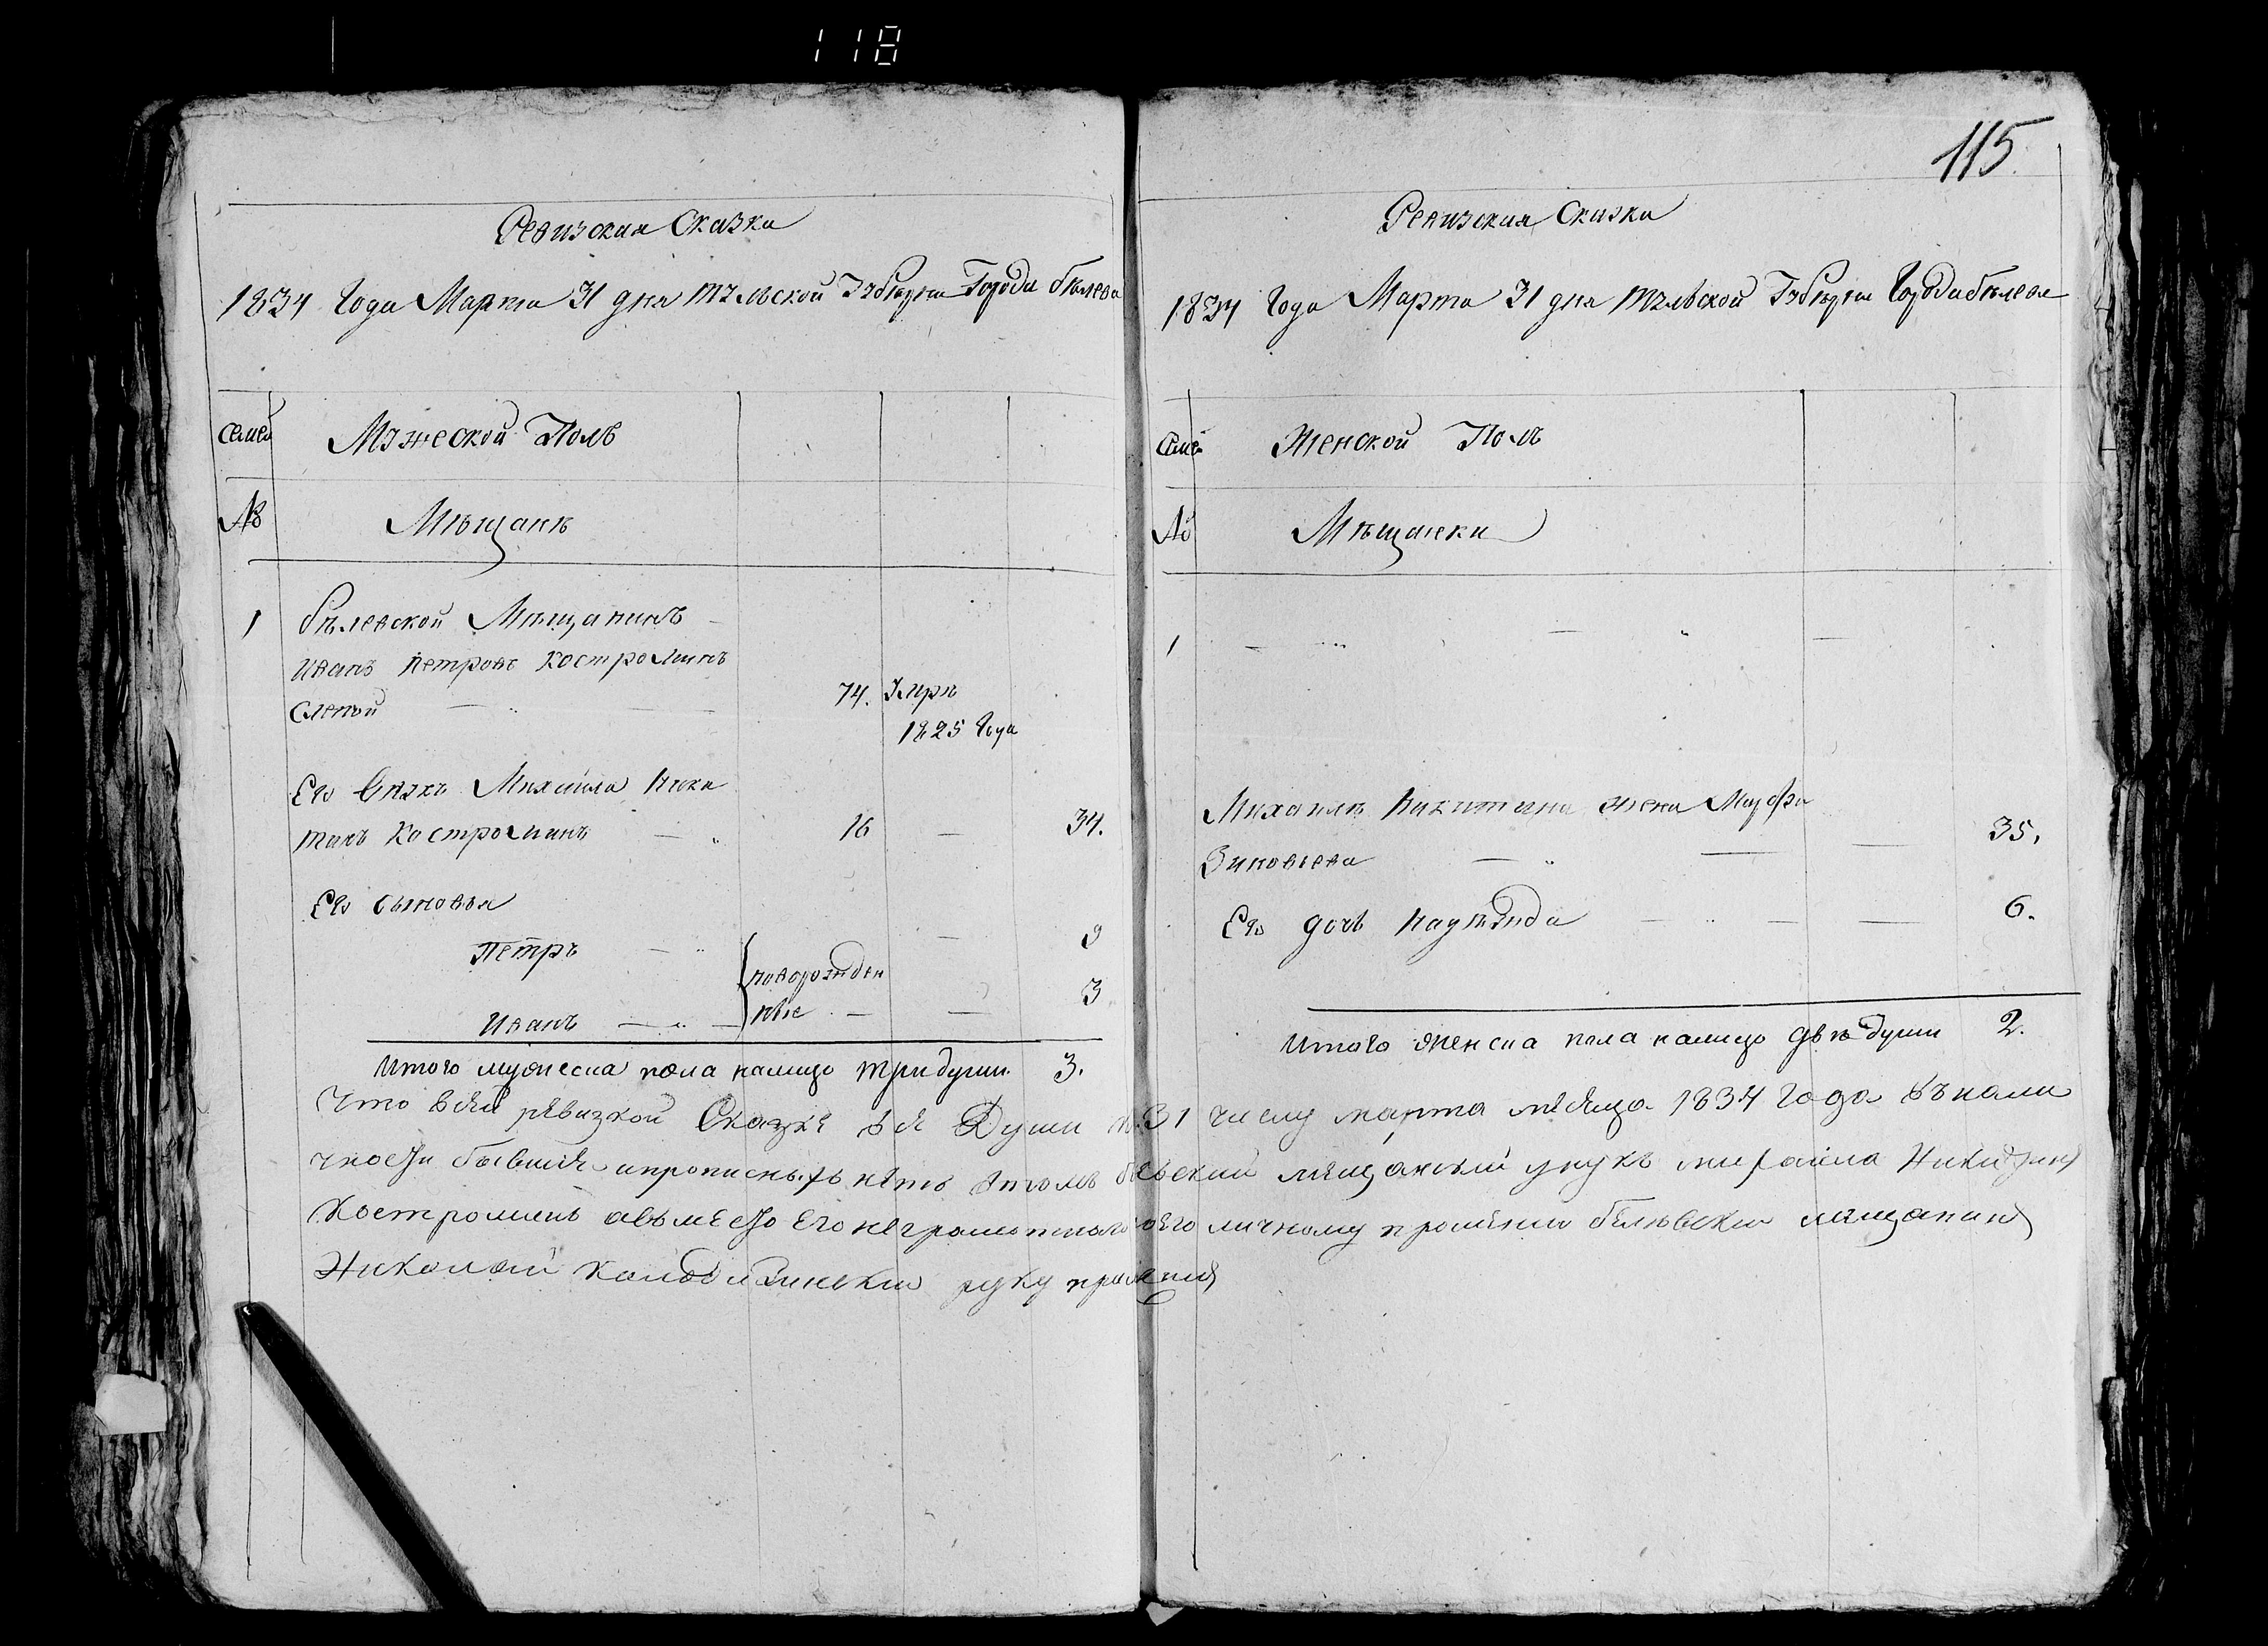 118
115
Ревизская Сказка
1834 Года Марта 31 дня тульской Губернии Города бѣлева
семей Мужеской Полъ
№ Мѣщанѣ
1 бѣлевской Мѣщанинъ
Иванъ Петровъ Костроминъ
Слепой 74. Умрѣ
1825 Года
Его Внукъ Михайла Ники
тинъ Костроминъ 16 34.
Его сыновья
Петръ 9
новорожден
ные 3
Иванъ
Итого мужеска пола налицо три души. 3.
Ревизская Сказка
1834 Года Марта 31 дня тульской Губернии Города бѣлева
Женской Полъ
№ Мѣщанки
1
Михаилѣ Никитина жена Марфа
Зиновьева 35.
Его дочь 6.
Итого женска пола налицо двѣ души 2.
Что всей ревизкой Сказке все Души к. 31 числу марта месяца 1834 года въ нали
чности бывшие и прописныхъ нетъ втомъ мещанский унукъ михайла Никитинъ
Костроминъ авместо его неграмотнаго его личному прошению белевский мещанинъ
Николай руку приложилъ